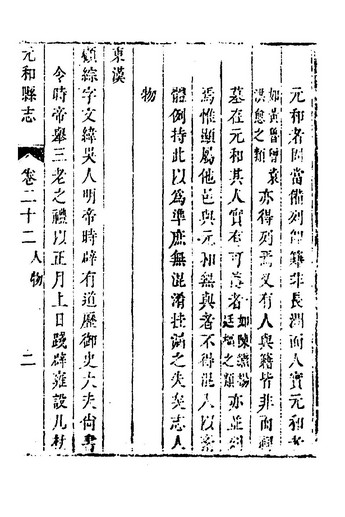 元和者固當備列卽籍非長洲而人實元和者
如黃魯曾袁
洪愈之類
亦得列焉又有人與籍皆非而祠
墓在元和其人實有可傳者
如陳
之類
亦並列
焉惟顯屬他邑與元和無與者不得混入以紊
體例持此以爲準庶無混淆挂漏之失矣志人
物
東漢
顧綜字文緯吳人明帝時辟有道歷御史大夫尙書
令時帝舉三老之禮以正月上日踐辟雍設几杖
元和縣志
卷二十二
人物
二